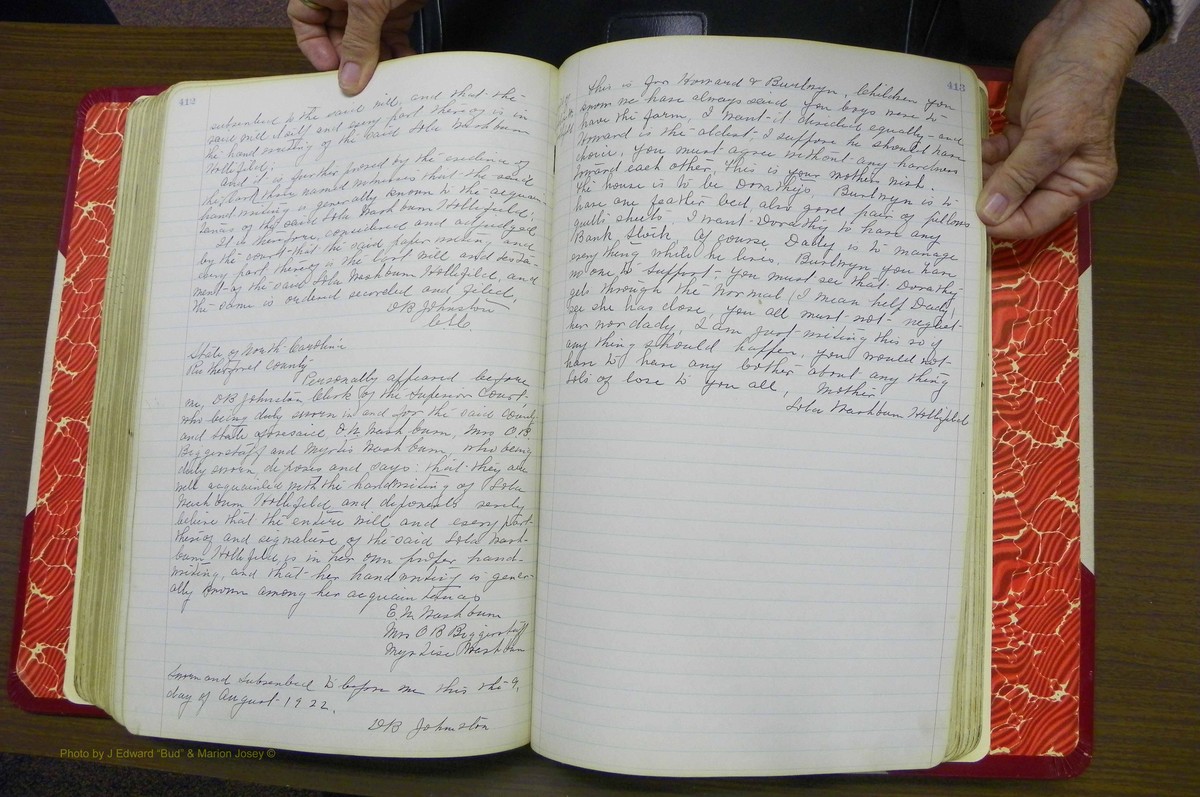 412
subscribed to the said will, and that the
said will itself and every part thereof is in
the hand writing of the said Lola Washburn
Hollifield;
And it is further proved by the evidence of
the three named witnesses that the said
hand writing is generally known to the acquain-
tances of the said Lola Washburn Hollifield;
It is therefore considered and adjudged
by the court that the said paper writing and
every part thereof is the last will and testa-
ment of the said Lola Washburn Hollifield, and
the same is ordered recorded and filed,
O B Johnston
C S C
State of North Carolina
Rutherford County
Personally appeared before
me, O B Johnston Clerk of the Superior Court
who being duly sworn in and for the said County
and State aforesaid Washburn, Mrs O. B.
Biggerstaff and Myrtis Washburn, who being
duly sworn, deposes and says: that they are
well acquainted with the handwriting of Lola
Washburn Hollifield, and deponents verily
believe that the entire will and every part
thereof and signature of the said Lola Wash-
burn Hollifield, is in her own proper hand-
writing, and that her hand writing is gener-
ally known among her acquaintances
E. N. Washburn
Mrs O B Biggerstaff
Washburn
Sworn and subscribed to before me this the 9,
day of August 1922,
O B Johnston
413
This is for Howard & Burlwyn, Children you
know we have always said you boys were to
have the farm, I want it divided equally and
Howard is the oldest I suppose he should have
choice, you must agree without any hardness
toward each other, this is your mothers wish.
The house is to be Dorathys. Burlwyn is to
have one feather bed also good pair of pillows
quilts sheets. I want Dorathy to have any
Bank Stock. Of course, Daddy is to manage
everything while he lives. Burlwyn you have
no one to support. You must see that Dorathy
gets through the normal (I mean help Dady)
see she has close, you all must not neglect
her nor dady, I am just writing this so if
any thing should happen, you would not
have to have any bother about any thing
lots of love to you all, Mother
Lola Washburn Hollifield
Photo by J Edward "Bud" & Marion Josey ©